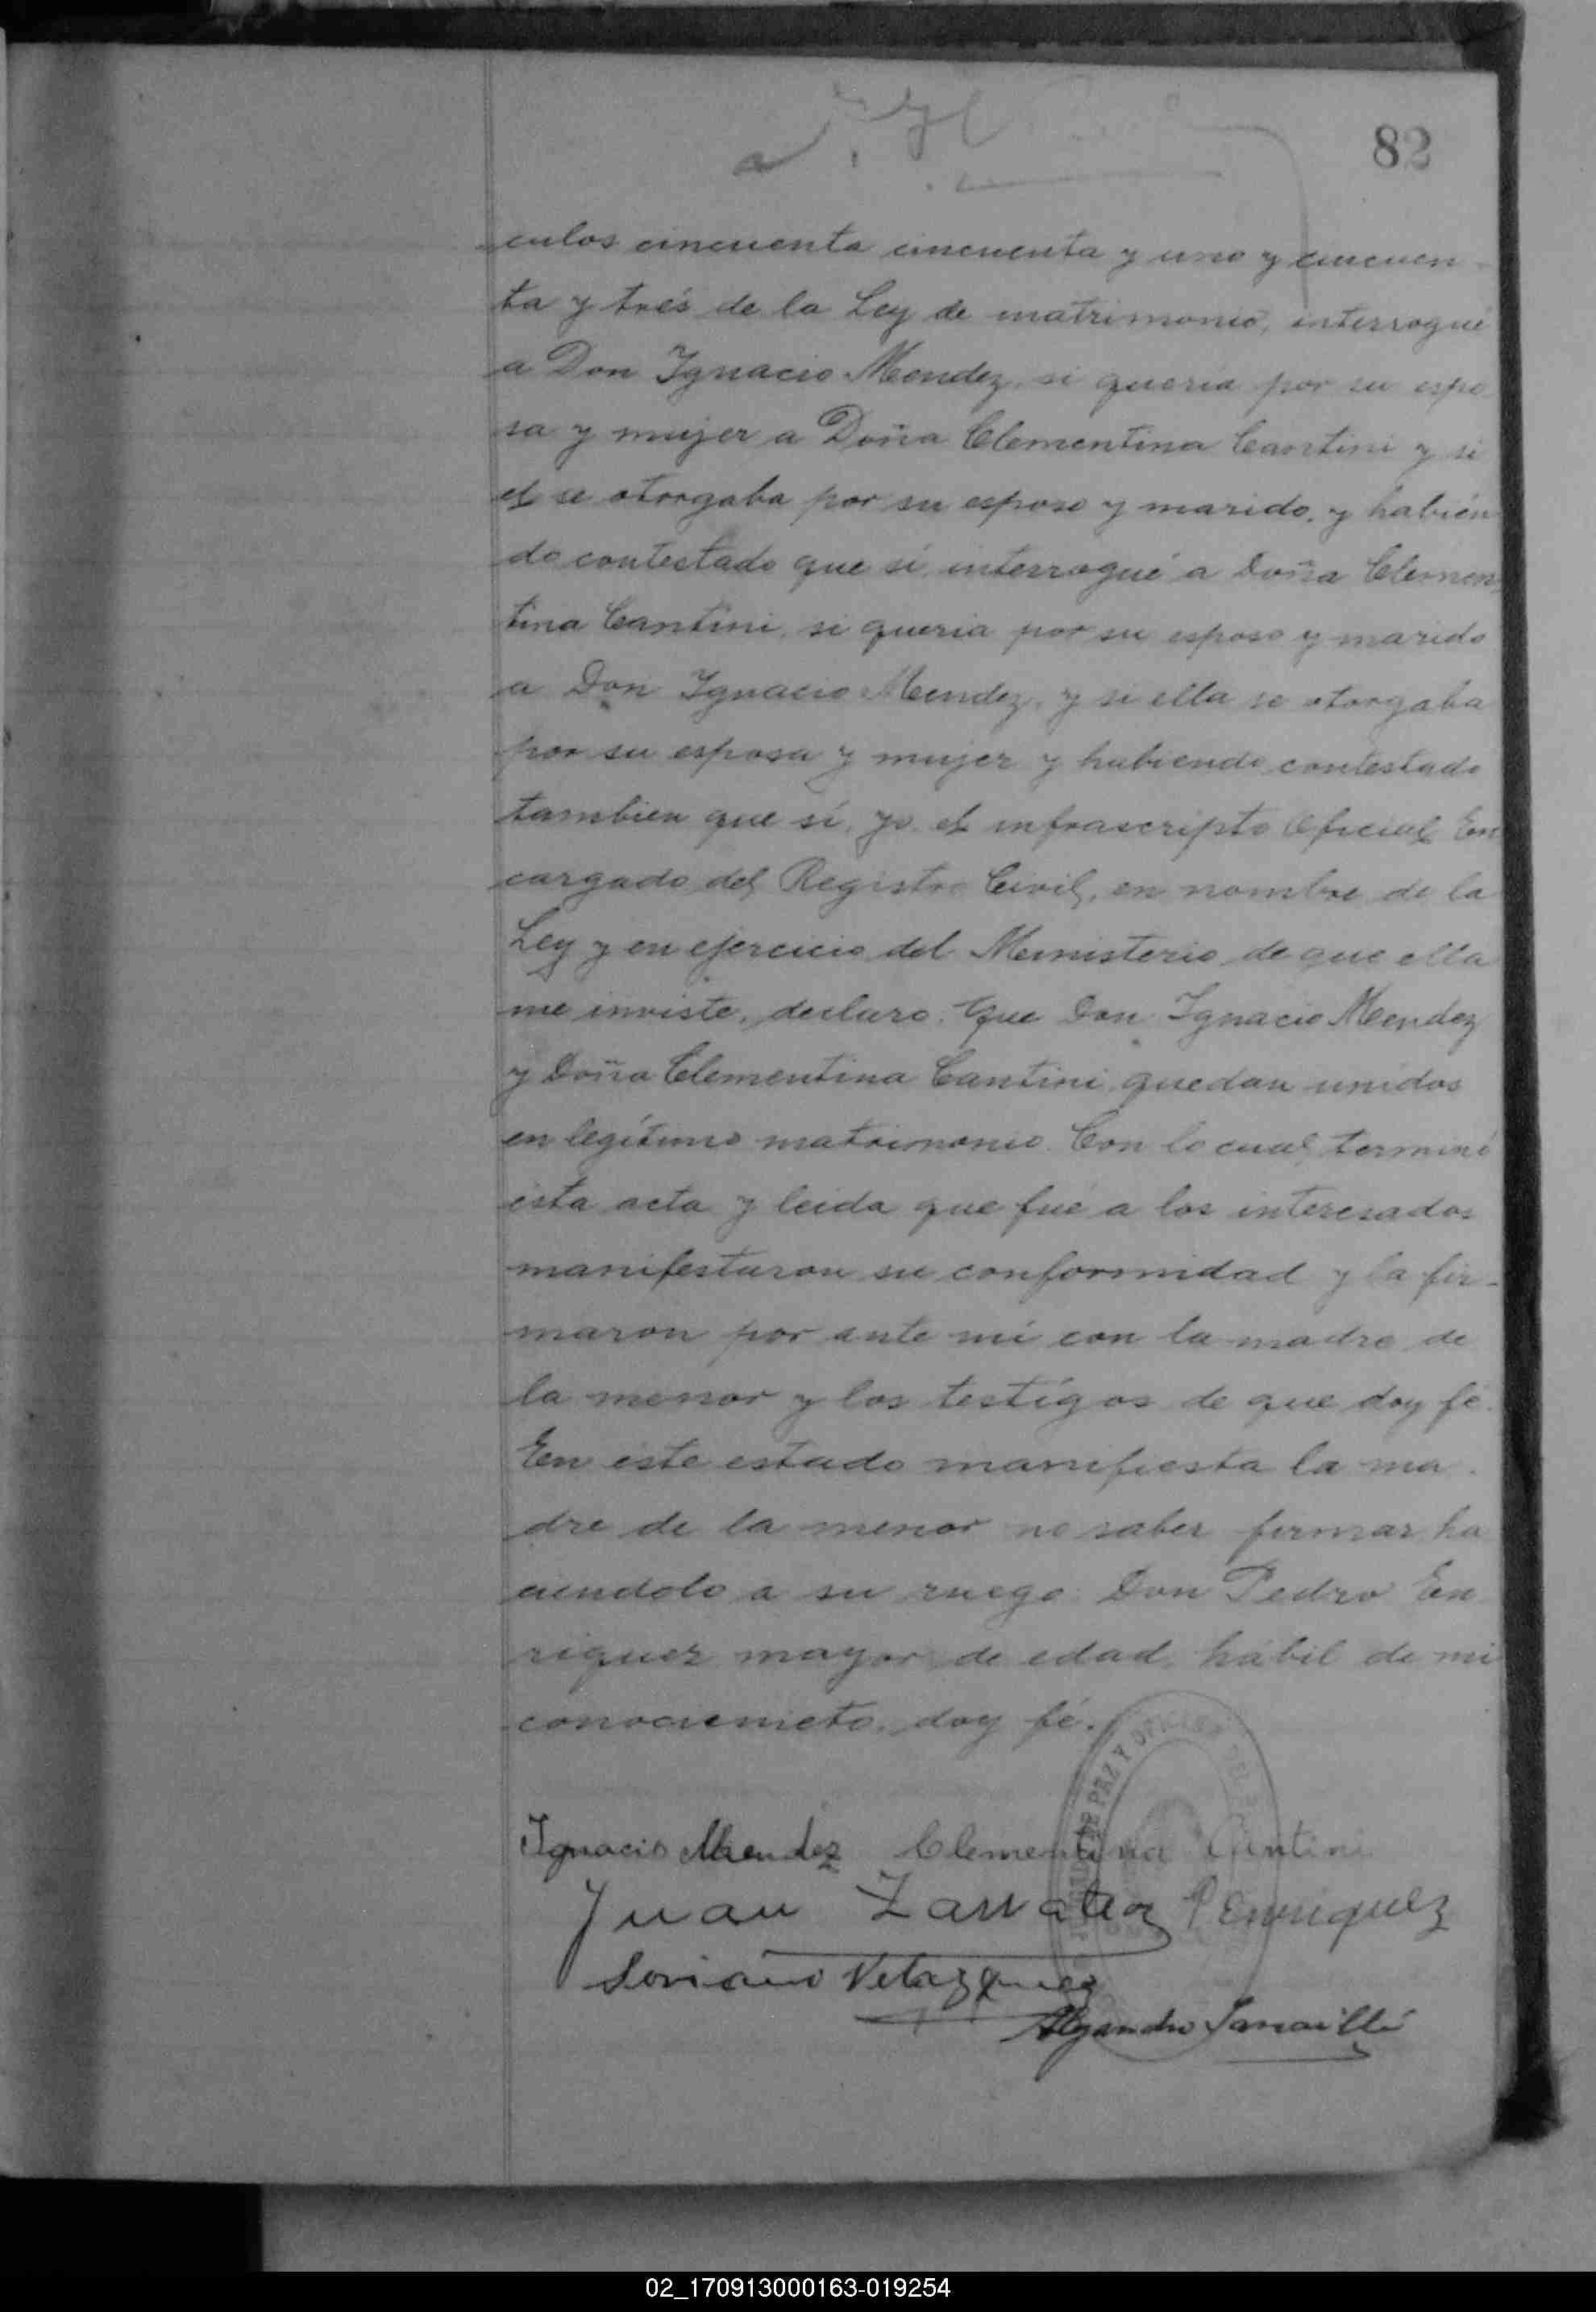 82
culos cincuenta cincuenta y uno y cincuen-
ta y trés de la Ley de matrimonio, interrogué
a Don Ignacio Mendez, si queria por su espo
sa y mujer a Doña Clementina Cantini y si
el se otorgaba por su esposo y marido, y habién
do contestado que sí, interrogué a Doña Clemen
tina Cantini, si queria por su esposo y marido
a Don Ignacio Mendez, y si ella se otorgaba
por su esposa y mujer y habiendo contestado
tambien que sí, yo el infrascripto Oficial En
cargado del Registro Civil, en nombre de la
Ley y en ejercicio del Ministerio de que ella
me inviste, declaro. Que Don Ignacio Mendez
y Doña Clementina Cantini quedan unidos
en legítimo matrimonio. Con lo cual terminó
esta acta y leida que fué a los interesados
manifestaron su conformidad y la fir-
maron por ante mí con la madre de
la menor y los testígos de que doy fé.
En este estado manifiesta la ma
dre de la menor no saber firmar ha
ciendolo a su ruego Don Pedro En
riquez mayor de edad, hábil de mi
conocienieto, doy fé.
DE PAZ Y OFICINA DEL
Ignacio Mendez Clementina Cantini
Juan P Enriquez
Soriano Velazquez
Alejandro
02_170913000163-019254